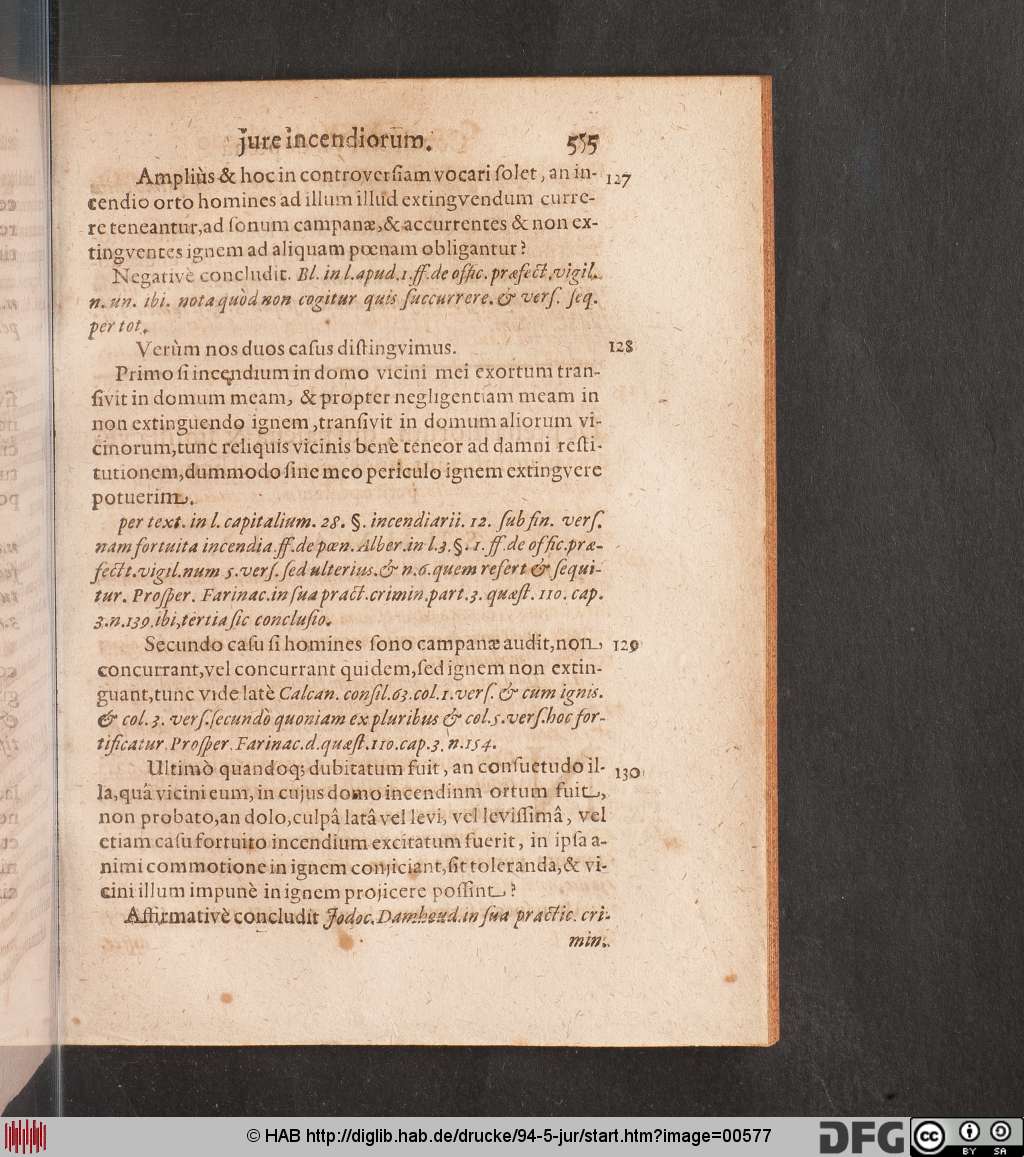 jure incendiorum. 555
Ampliùs & hoc in controversiam vocari solet, an in- 127
cendio orto homines ad illum illud extingvendum curre-
re teneantur, ad sonum campanæ, & accurrentes & non ex-
tingventes ignem ad aliquam pœnam obligantur?
Negativè concludit. Bl. in l. apud. 1. ff. de offic. præfect. vigil.
n. un. ibi. nota quòd non cogitur quis succurrere. & vers. seq.
per tot.
Verùm nos duos casus distingvimus. 128
Primo si incendium in domo vicini mei exortum tran-
sivit in domum meam, & propter negligentiam meam in
non extinguendo ignem, transivit in domum aliorum vi-
cinorum, tunc reliquis vicinis benè teneor ad damni resti-
tutionem, dummodo sine meo periculo ignem extingvere
potuerim.
per text. in l. capitalium. 28. §. incendiarii. 12. sub fin. vers.
nam fortuita incendia. ff. de pœn. Alber. in l. 3. §. 1. ff. de offic. præ-
fectt. vigil. num 5. vers. sed ulterius. & n. 6. quem refert & sequi-
tur. Prosper. Farinac. in sua pract. crimin. part. 3. quæst. 110. cap.
3. n. 139. ibi, tertia sic conclusio.
Secundo casu si homines sono campanæ audit, non 129
concurrant, vel concurrant quidem, sed ignem non extin-
guant, tunc vide latè Calcan. consil. 63. col. 1. vers. & cum ignis.
& col. 3. vers. secundò quoniam ex pluribus & col. 5. vers. hoc for-
tificatur Prosper. Farinac. d. quæst. 110. cap. 3. n. 154.
Ultimò quandoq; dubitatum fuit, an consuetudo il- 130
la, quâ vicini eum, in cujus domo incendium ortum fuit,
non probato, an dolo, culpâ latâ vel levi, vel levissimâ, vel
etiam casu fortuito incendium excitatum fuerit, in ipsa a-
nimi commotione in ignem conjiciant, sit toleranda, & vi-
cini illum impunè in ignem projicere possint?
Affirmativè concludit Jodoc. Damhoud. in sua practic. cri-
min.
© HAB http://diglib.hab.de/drucke/94-5-jur/start.htm?image=00577
DFG cc BY SA